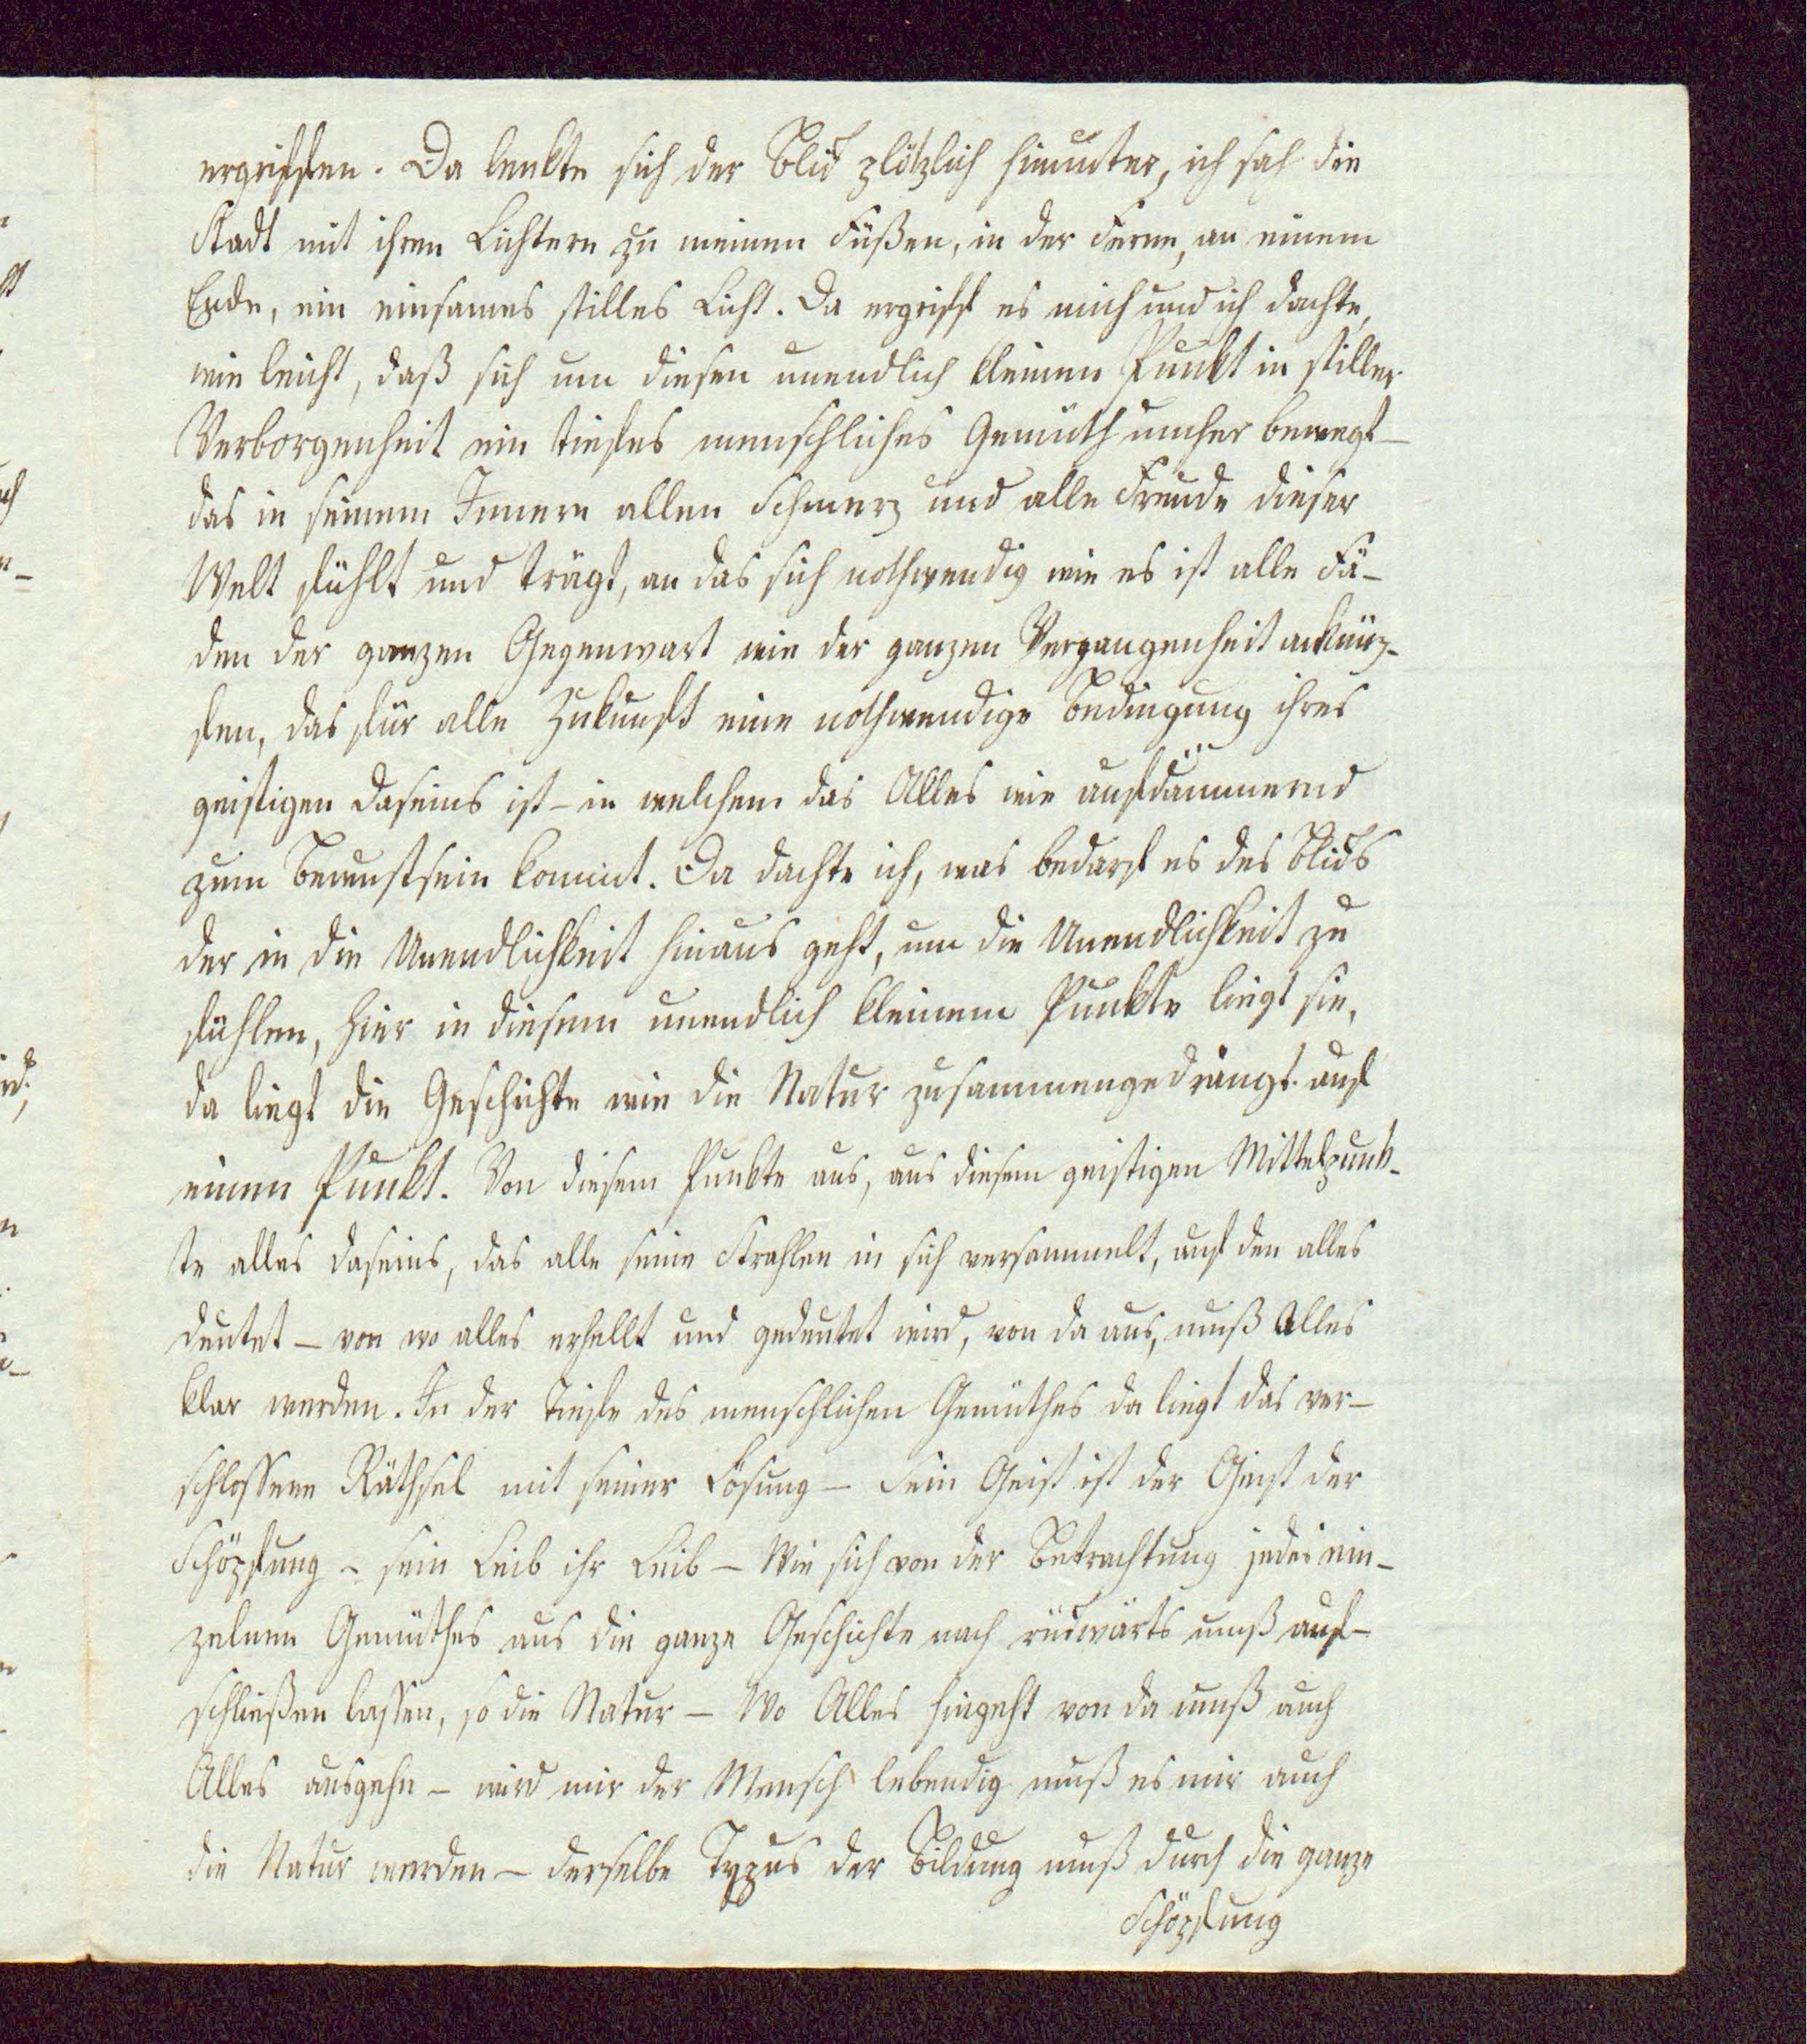 ergriffen. Da lenkte sich der Blick plötzlich hinunter, ich sah die
Stadt mit ihren Lichtern zu meinen Füßen, in der Ferne, an einem
Ende, ein einsames stilles Licht. Da ergriff es mich und ich dachte,
wie leicht, daß sich um diesen unendlich kleinen Punkt in stiller
Verborgenheit ein tiefes menschliches Gemüth umher bewegt –
das in seinem Innern allen Schmerz und alle Freude dieser
Welt fühlt und trägt, an das sich nothwendig wie es ist alle Fä-
den der ganzen Gegenwart wie der ganzen Vergangenheit anknüp-
fen, das für alle Zukunft eine nothwendige Bedingung ihres
geistigen Daseins ist – in welchem das Alles wie aufdämmernd
zum Bewustsein kommt. Da dachte ich, was bedarf es des Blicks
der in die Unendlichkeit hinaus geht, um die Unendlichkeit zu
fühlen, hier in diesem unendlich kleinem Punkte liegt sie,
da liegt die Geschichte wie die Natur zusammengedrängt auf
einem Punkt. Von diesem Punkte aus, aus diesem geistigen Mittelpunk-
te alles Daseins, das alle seine Strahlen in sich versammelt, auf den alles
deutet – von wo alles erhellt und gedeutet wird, von da aus, muß Alles
klar werden. In der Tiefe des menschlichen Gemüthes da liegt das ver-
schlossene Räthsel mit seiner Lösung – Sein Geist ist der Geist der
Schöpfung – sein Leib ihr Leib – Wie sich von der Betrachtung jedes ein-
zelnen Gemüthes aus die ganze Geschichte nach rückwärts muß auf-
schließen lassen, so die Natur – Wo Alles hingeht von da muß auch
Alles ausgehn – wird mir der Mensch lebendig muß es mir auch
die Natur werden – derselbe Typus der Bildung muß durch die ganze
Schöpfung